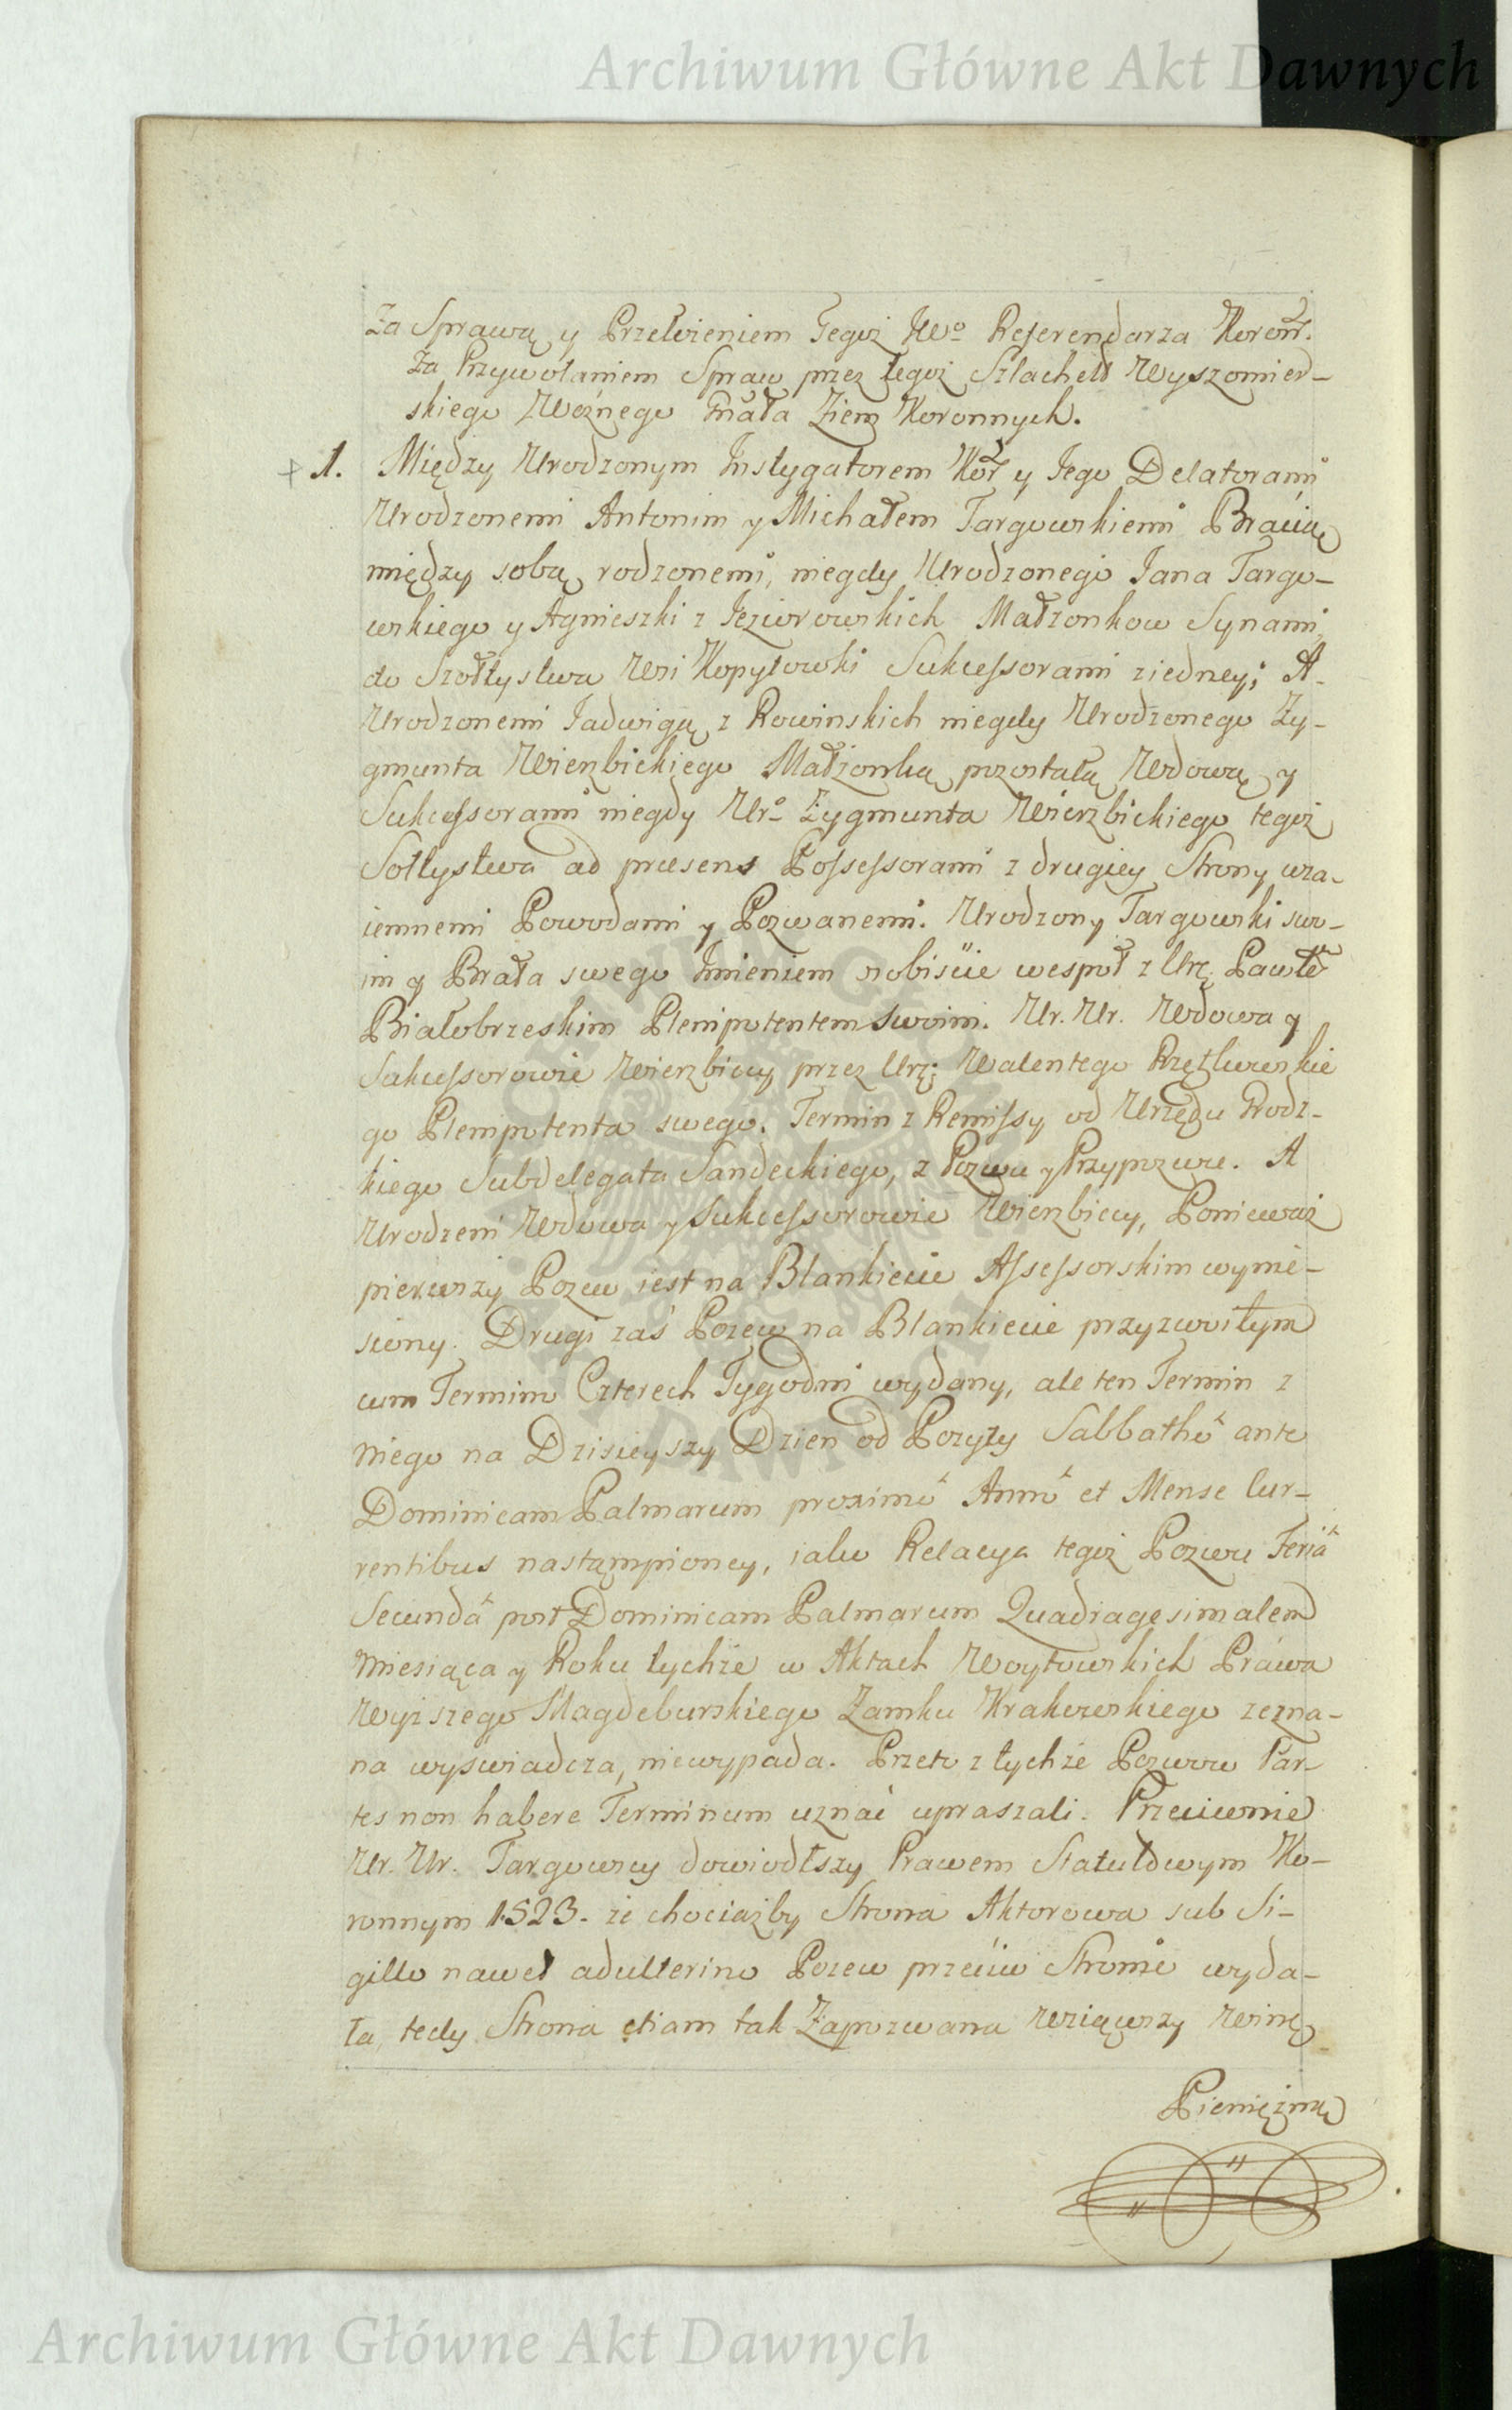 Archiwum Główne Akt Dawnych
Za Sprawą y Przełożeniem Tegoż JWo Referendarza Koronn.
Za Przywołaniem Spraw przez tegoż Szlachet Wyszomier-
skiego Woźnego Gnała Ziem Koronnych.
+ 1. Między Urodzonym Instygatorem Kor y Jego Delatorami
Urodzonemi Antonim y Michałem Targowskiemi Bracią
między sobą rodzonemi, niegdy Urodzonego Jana Targo-
wskiego y Agnieszki z Jeziorowskich Małzonkow Synami,
do Szołtystwa Wsi Kopytowki Sukcessorami ziedney; A
Urodzonemi Jadwigą z Rowinskich niegdy Urodzonego Zy-
gmunta Wierzbickiego Małżonką pozostałą Wdową y
Sukcessorami niegdy Uro Zygmunta Wierzbickiego tegoż
Sołtystwa ad praesens Possessorami z drugiey Strony wza-
iemnemi Powodami y Pozwanemi. Urodzony Targowski swo-
im y Brata swego Imieniem osobiście wespoł z Urż Pawłe
Białobrzeskim Plenipotentem swoim. Ur. Ur. Wdowa y
Sukcessorowie Wierzbiccy przez Urż: Walentego Krętkowskie
go Plenipotenta swego. Termin z Remissy od Urzędu Grodz-
kiego Subdelegata Sandeckiego, z Pozwu y Przypozwu. A
Urodzeni Wdowa y Sukcessorowie Wierzbiccy, Ponieważ
pierwszy Pozew iest na Blankiecie Assessorskim wynie-
siony. Drugi zaś Pozew na Blankiecie przyzwoitym
cum Termino Czterech Tygodni wydany, ale ten Termin z
niego na Dzisieyszy Dzien od Pozyty Sabbathô ante
Dominicam Palmarum proximê Annô et Mense Cur-
rentibus nastąmpioney, iako Relacya tegoż Pozwu Feriâ
Secundâ post Dominicam Palmarum Quadragesimalem
Miesiąca y Roku tychże w Aktach Woytowskich Prawa
Wyższego Magdeburskiego Zamku Krakowskiego zezna-
na wyswiadcza, niewypada. Przeto z tychże Pozwow Par-
tes non habere Terminum uznać upraszali. Przeciwnie
Ur. Ur. Targowscy dowiodłszy Prawem Statutowym Ko-
ronnym 1523. że chociażby Strona Aktorowa sub Si-
gillo nawet adulterino Pozew przeciw Stronie wyda-
ła, tedy Strona etiam tak Zapozwana wziąwszy Winę
Pieniężną
Archiwum Główne Akt Dawnych